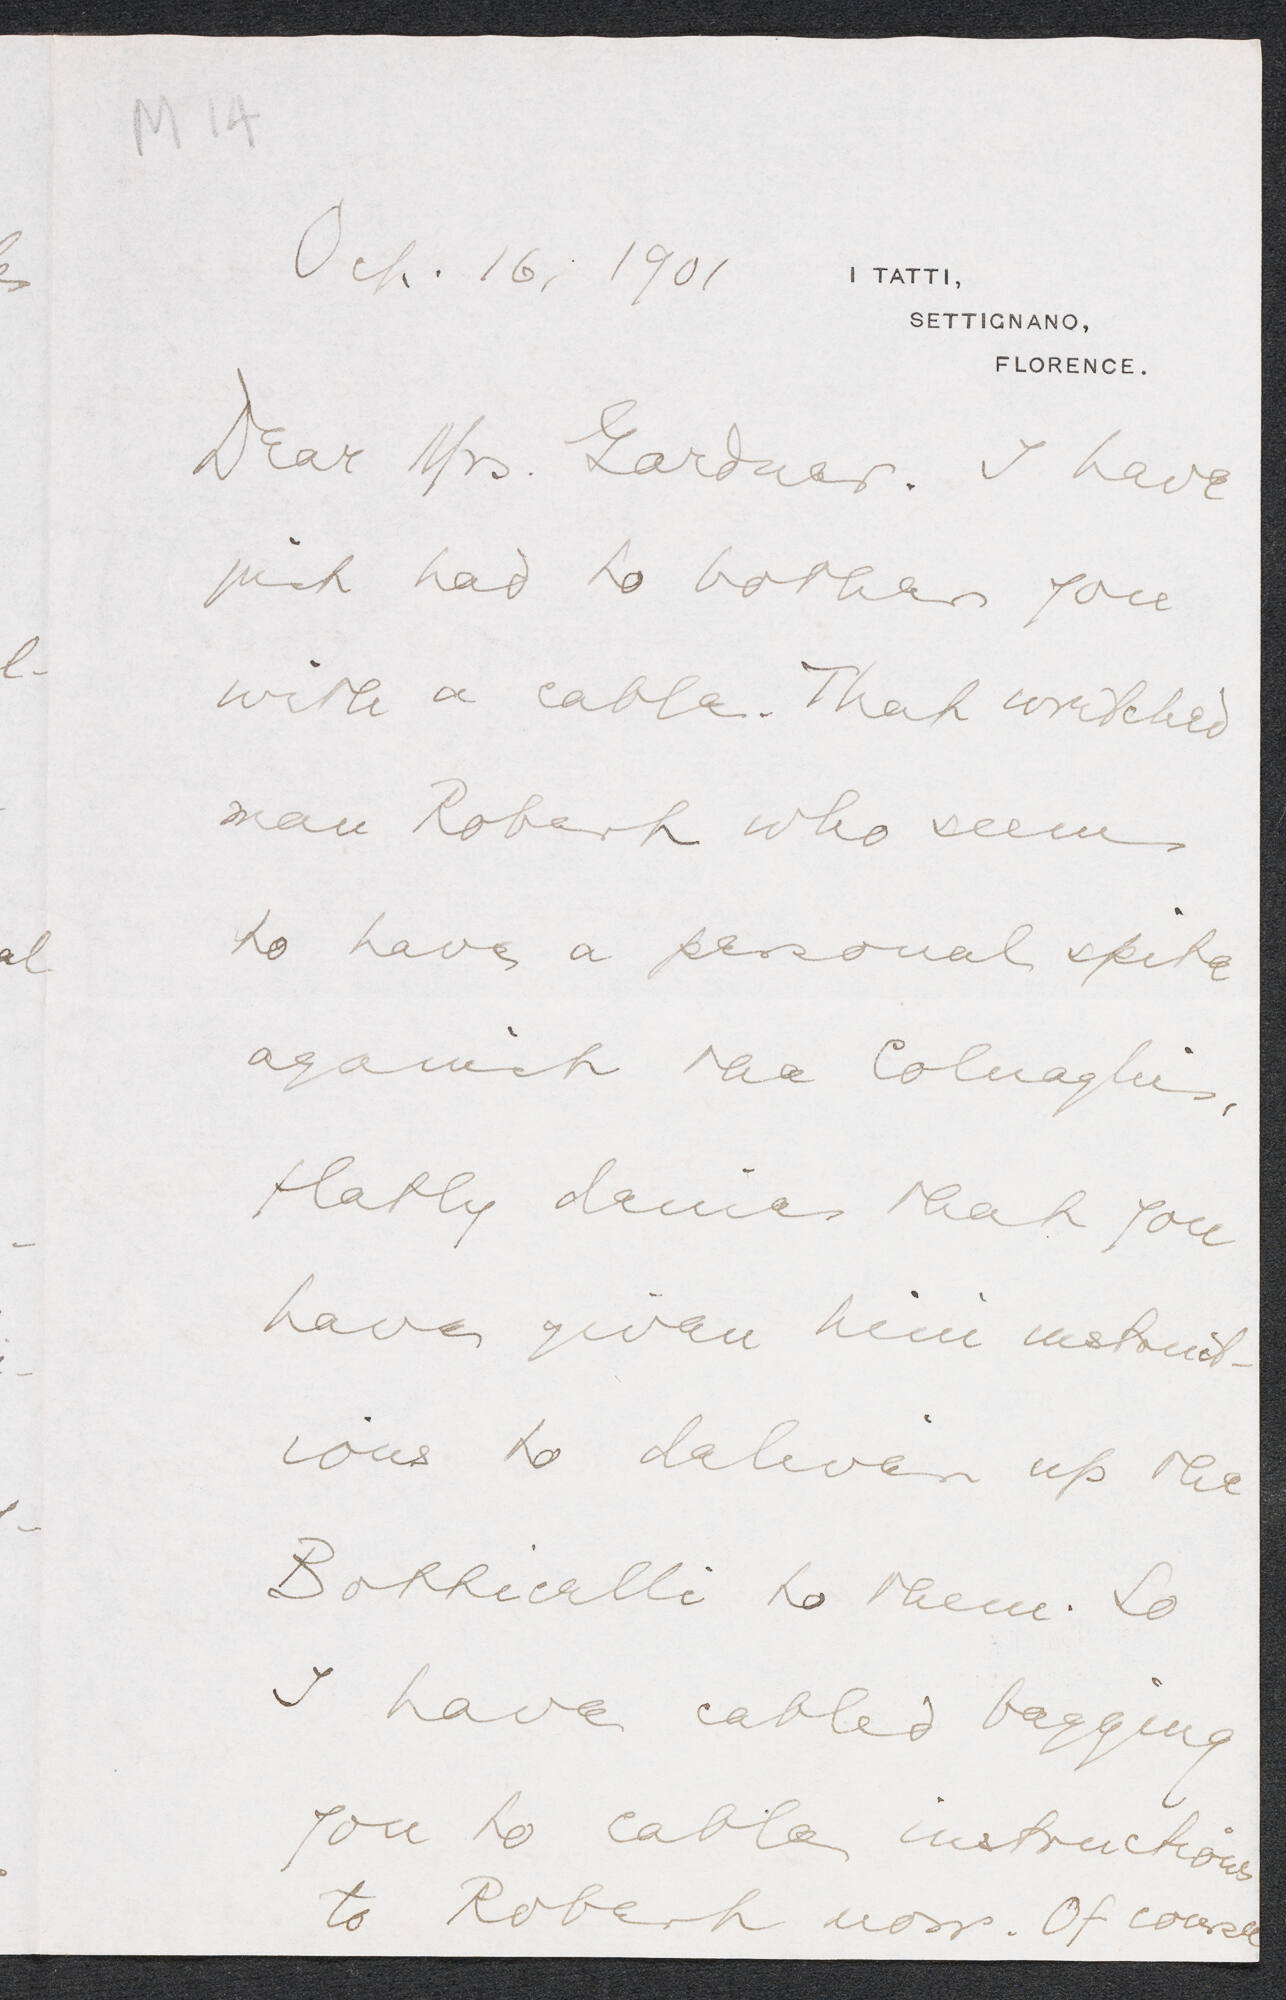 M 14
Oct. 16, 1901
I TATTI,
SETTIGNANO,
FLORENCE.
Dear Mrs. Gardner. I have
just had to bother you
with a cable. That wretched
man Robert who seems
to have a personal spite
against the Colnaghis,
flatly denies that you
have given him instruct-
ions to deliver up the
Botticelli to them. So
I have cabled begging
you to cable instructions
to Robert now. Of course
al
l-